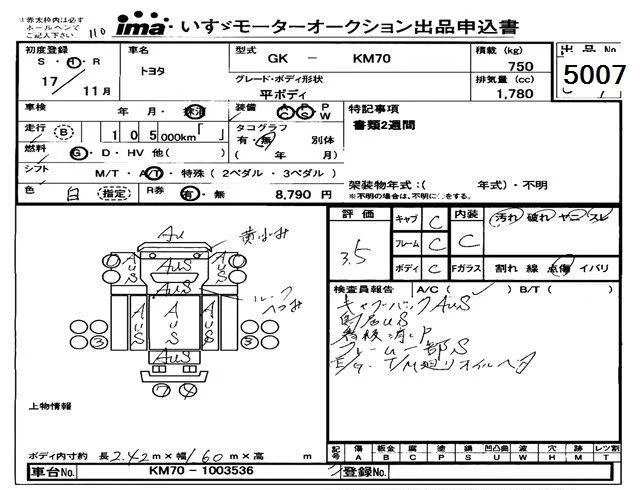 ※赤太枠内は必ず
ホールペンで
ご記入下さい。
110
ima いすゞモーターオークション出品申込書
初度登録
S・H・R
17 11月
車名
トヨタ
型式
GK － KM70
グレード・ボディ形状
平ボディ
積載 (kg)
750
排気量 (cc)
1,780
出品 No
5007
車検 年・月・抹消
装備 A C・P S・P W
特記事項
書類2週間
走行 B 105000km「 」
タコグラフ
有・無 別体
( 年 月)
燃料 G・D・HV 他( )
シフト M/T・A/T・特殊 (2ペダル・3ペダル)
架装物年式:( 年式)・不明
※不明の場合は、不明に○をする。
色 白 (指定) R券 有・無 8,790 円
評価
3.5
キャブ C
フレーム C
ボディ C
内装 C
汚れ 破れ ヤニ スレ
Fガラス 割れ 線 点傷 イバリ
Au
黄ばみ
AuS
AuS
AuS
AuS
ルーフ
へこみ
AuS
AuS
AuS
3
3
AuS
7 4
検査員報告 A/C ( ) B/T ( )
キャブバックAuS
フレーム一部S
E/G・T/M廻りオイルベタ
上物情報
ボディ内寸約 長 2.42m×幅 1.60m×高 m
記号 傷 A 板金 B 腐 C 塗 P 錆 S 凹凸曲 U 波 W 穴 H 跡 M レツ割 T
車台No. KM70－1003536
登録No.